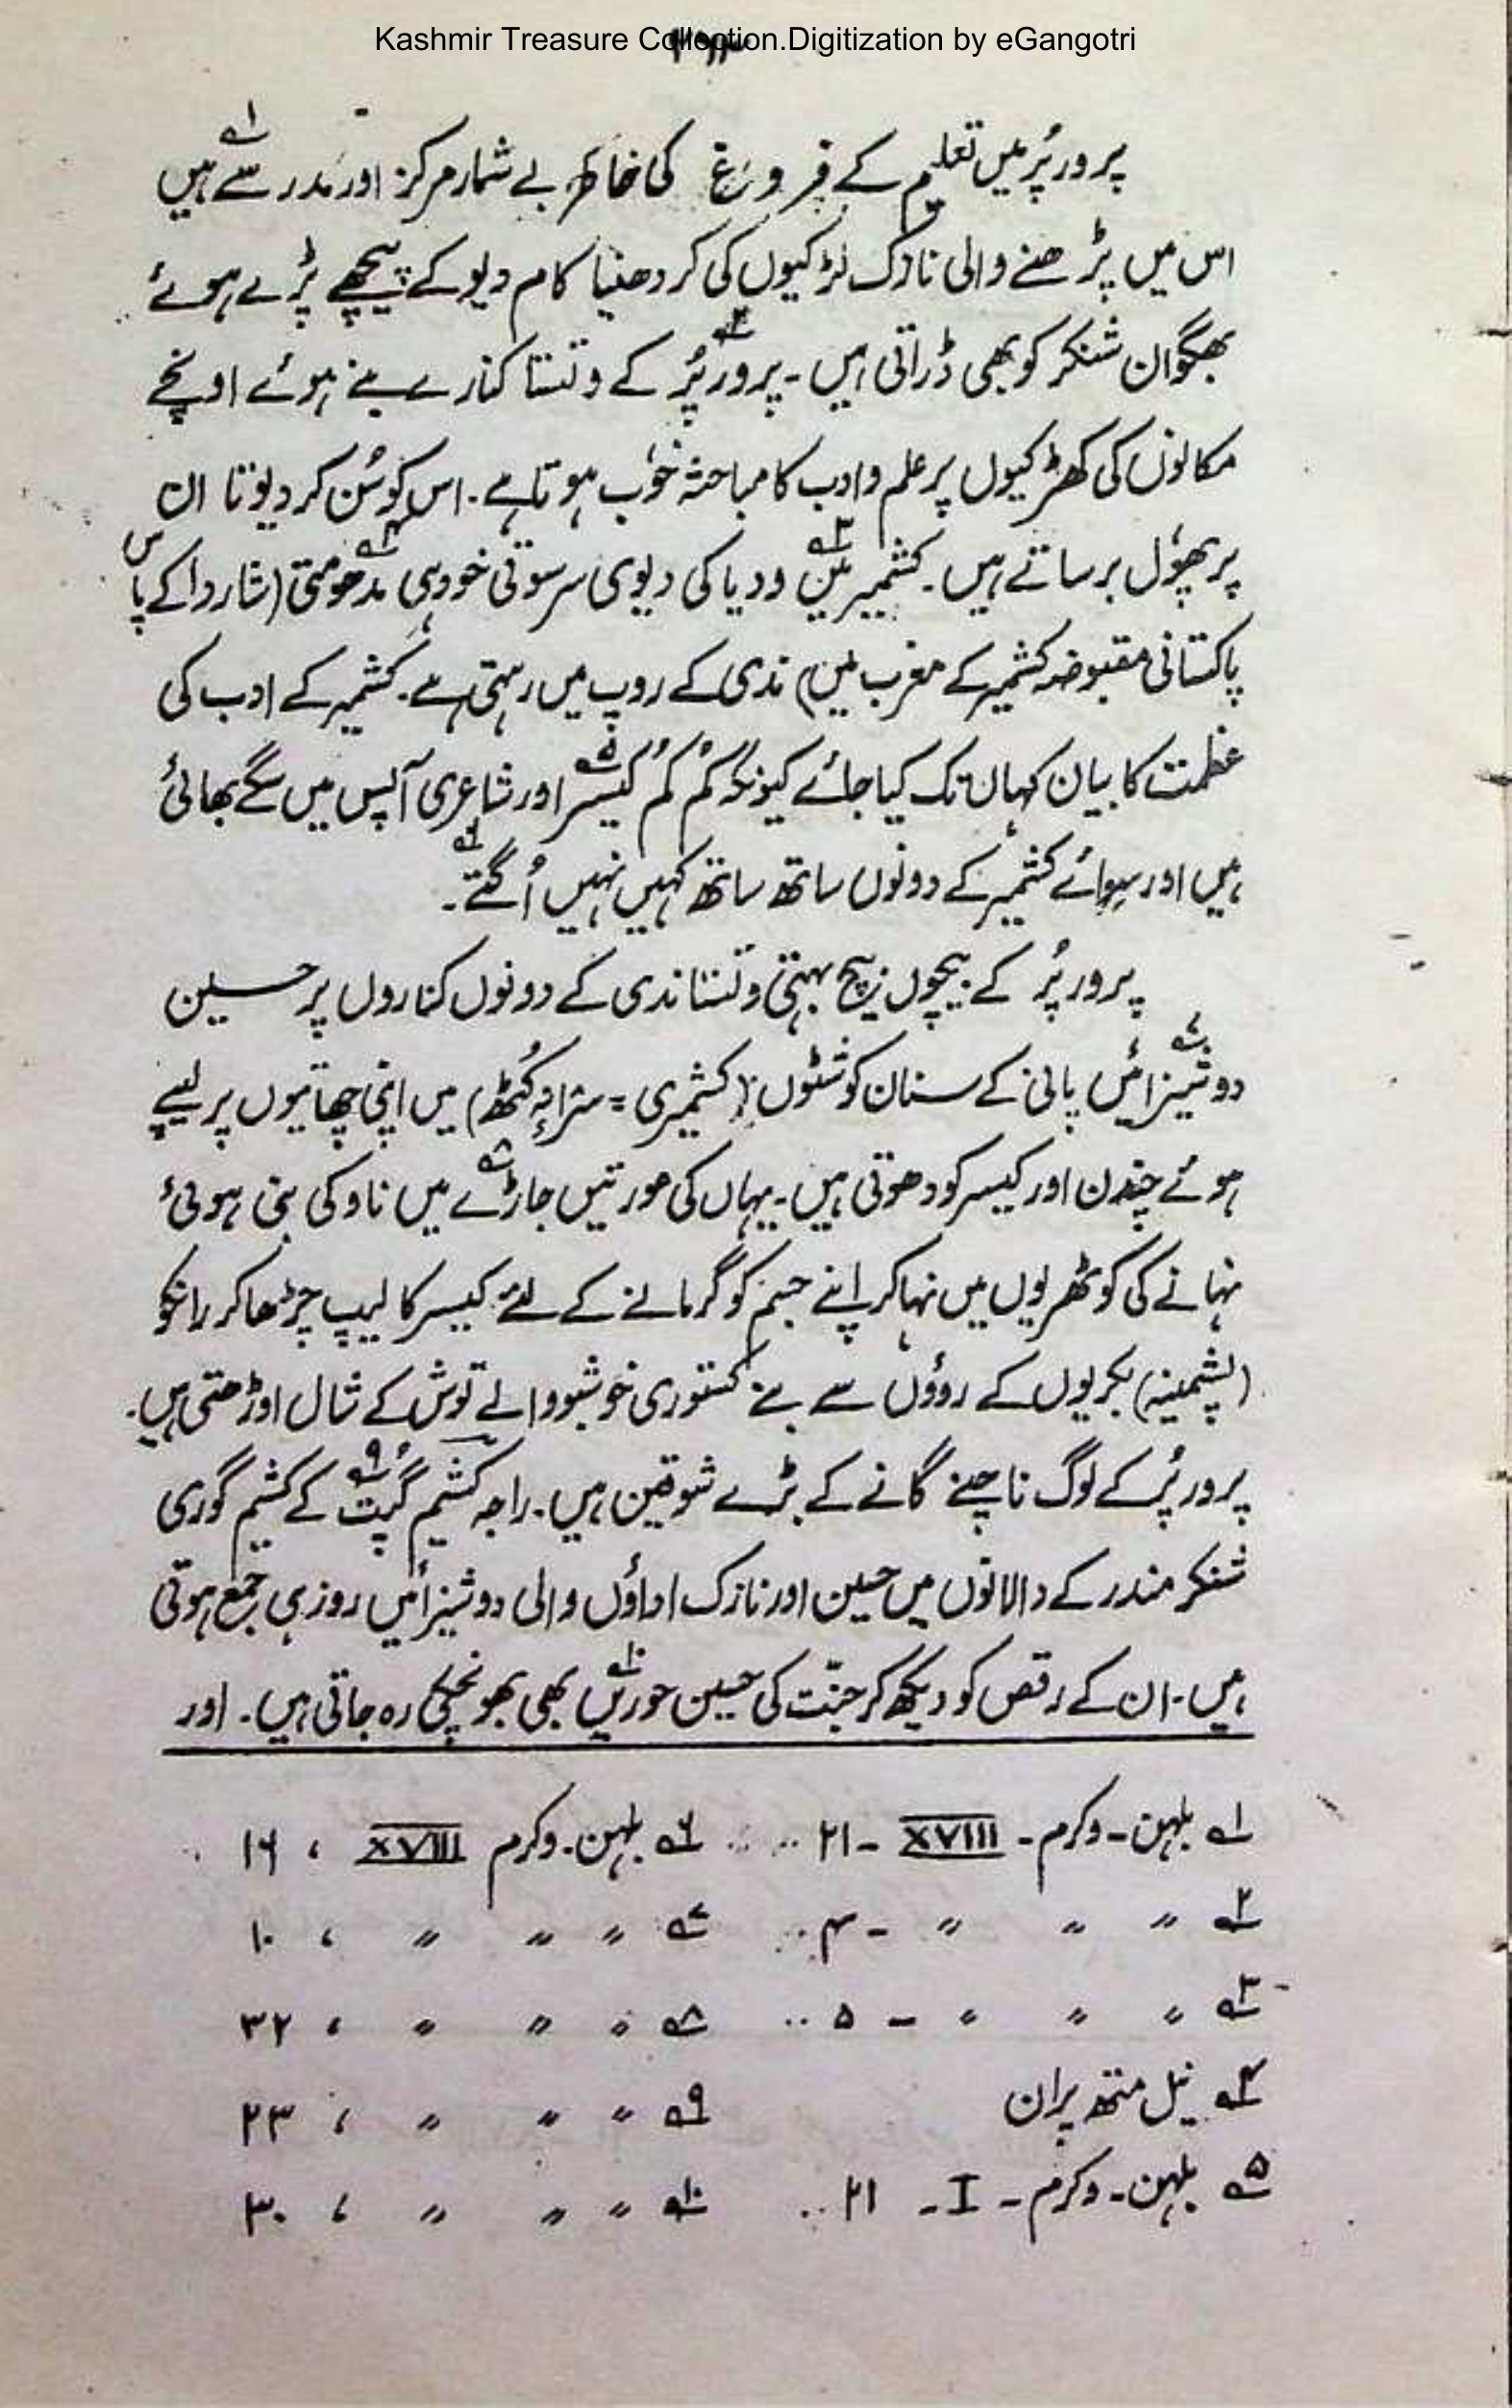 Kashmir Treasure Collection.Digitization by eGangotri
پرورپُر میں تعلیم کے فروغ کی خاطر بے شمار مرکز اور مدرسے ہیں ۱؎
اس میں پڑھنے والی نازک لڑکیوں کی کردھنیا کام دیو کے پیچھے پڑے ہوئے
بھگوان شنکر کو بھی ڈراتی ہیں۔ پرورپُر ۲؎ کے وتستا کنارے بنے ہوئے اونچے
مکانوں کی کھڑکیوں پر علم و ادب کا مباحثہ خوب ہوتا ہے۔ اس کو سُن کر دیوتا ان
پر پھول برساتے ہیں۔ ۳؎ کشمیر میں ودیا کی دیوی سرسوتی خود ہی مدھومتی ۴؎ (شاردا کے پاس
پاکستانی مقبوضہ کشمیر کے مغرب میں) ندی کے روپ میں رہتی ہے۔ کشمیر کے ادب کی
عظمت کا بیان کہاں تک کیا جائے کیونکہ کُم کُم کیسر ۵؎ اور شاعری آپس میں سگے بھائی
ہیں اور سوائے کشمیر کے دونوں ساتھ ساتھ کہیں نہیں اُگتے ۶؎۔
پرورپُر کے بیچوں بیچ بہتی وتستا ندی کے دونوں کناروں پر حسین
دوشیزائیں ۷؎ پانی کے سنان کوشٹوں (کشمیری = شرانہِ کُٹھ) میں اپنی چھاتیوں پر لیپے
ہوئے چندن اور کیسر کو دھوتی ہیں۔ یہاں کی عورتیں جاڑے ۸؎ میں ناو کی بنی ہوئی
نہانے کی کوٹھریوں میں نہا کر اپنے جسم کو گرمانے کے لئے کیسر کا لیپ چڑھا کر رانکو
(پشمینہ) بکریوں کے روؤں سے بنے کستوری خوشبو والے توش کے شال اوڑھتی ہیں۔
پرورپُر کے لوگ ناچنے گانے کے بڑے شوقین ہیں۔ راجہ کشیم گُپت ۹؎ کے کشیم گوری
شنکر مندر کے دالانوں میں حسین اور نازک اداؤں والی دوشیزائیں روز ہی جمع ہوتی
ہیں۔ ان کے رقص کو دیکھ کر جنّت کی حسین حوریں ۱۰؎ بھی بھونچکی رہ جاتی ہیں۔ اور
۱؎ بلہن۔ وکرم۔ XVIII - ۲۱ ... ۶؎ بلہن۔ وکرم XVIII ، ۱۶
۲؎ 〃 〃 〃 - ۴ ... ۷؎ 〃 〃 〃 ، ۱۰
۳؎ 〃 〃 〃 - ۵ .. ۸؎ 〃 〃 〃 ، ۳۲
۴؎ نیل متھ پران ۹؎ 〃 〃 〃 ، ۲۳
۵؎ بلہن۔ وکرم۔ I - ۲۱ .. ۱۰؎ 〃 〃 〃 ، ۳۰